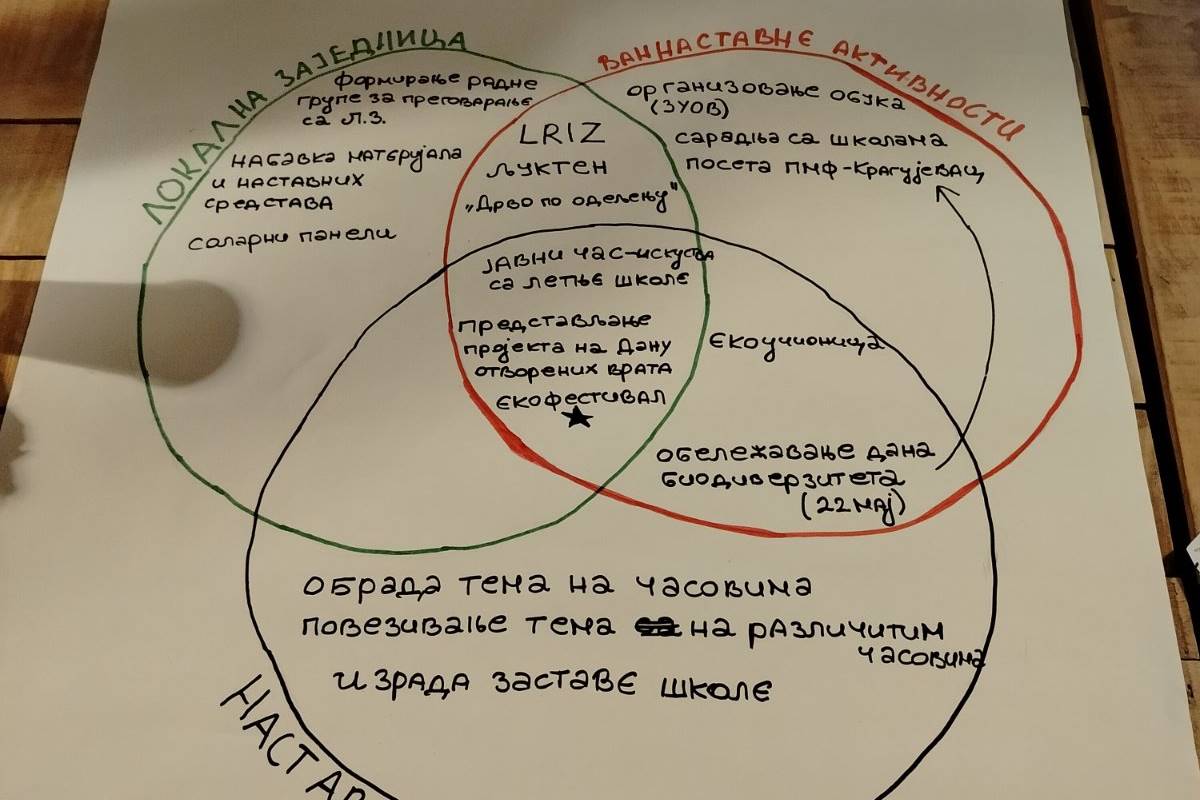 ЛОКАЛНА ЗАЈЕДНИЦА
формирање радне
групе за преговарање
са Л.З.
набавка матерујала
и наставних
средстава
соларни панели
ВАННАСТАВНЕ АКТИВНОСТИ
организовање обука
(ЗУОВ)
сарадња са школама
посета ПМФ-Крагујевац
LRIZ
Љуктен
„Дрво по одељењу"
јавни час-искуства
са летње школе
представљање
пројекта на Дану
отворених врата
екофестивал
екоучионица
обележавање дана
биодиверзитета
(22 мај)
обрада тема на часовима
повезивање тема на различитим
часовима
израда заставе школе
НАСТАВ